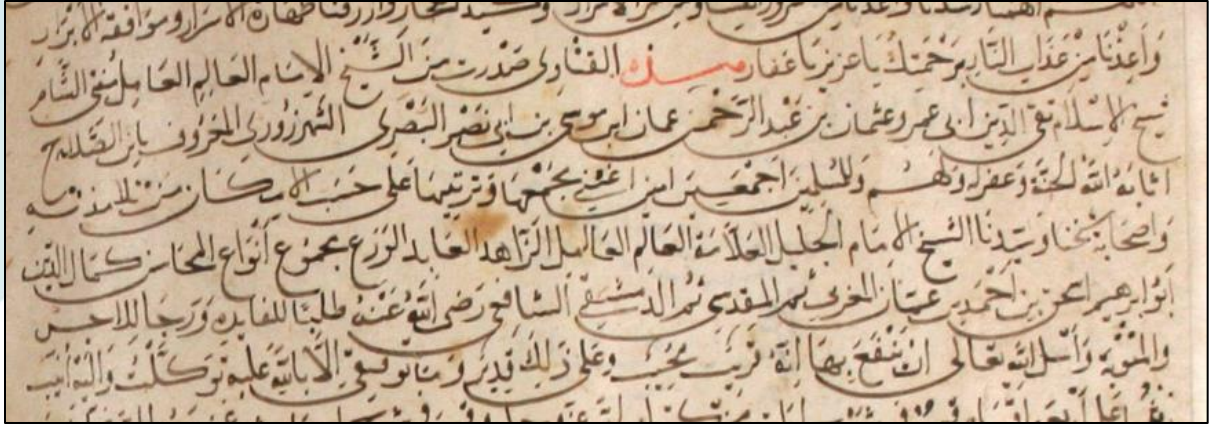 وأعذنا من عذاب النار برحمتك يا عزيز يا غفار هذه الفتاوى صدرت من الشيخ الامام العالم العامل مفتي الشام
شيخ الاسلام تقي الدين ابي عمرو عثمان بن عبد الرحمن بن عثمان ابن موسى بن ابي نصر البصري الشهرزوري المعروف بابن الصلاح
اثابه الله الجنة وغفر له ولهم وللمسلمين اجمعين امين اعتنى بجمعها وترتيبها على حسب الامكان من تلامذته
واصحابه شيخنا وسيدنا الشيخ الامام الجليل العلامة العالم العامل الزاهد العابد الورع مجموع أنواع المحاسن كمال الدين
ابو ابرهيم اسحق بن احمد بن عثمان المغربي ثم المقدسي ثم الدمشقي الشافعي رضى الله عنه طلبا للفايدة ورجا للاجر
والمثوبة وأسل الله تعالى ان ينفع بها انه قريب مجيب وعلى ذلك قدير وما توفيقي الا بالله عليه توكلت واليه أنيب